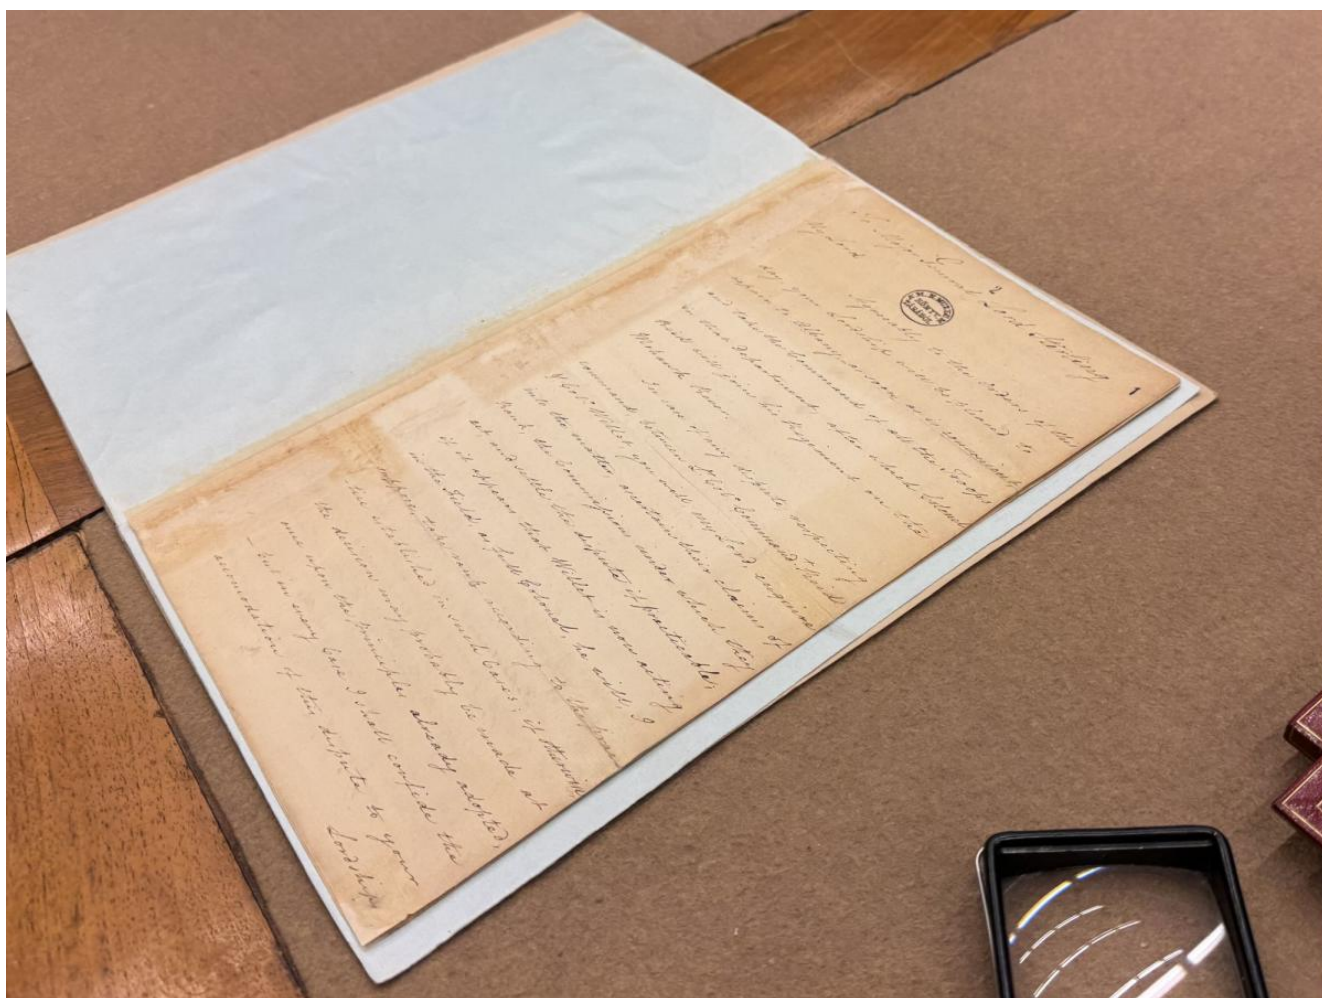 2
To Major General Lord Stirling
1
My Lord
Agreeably to the orders of the
day your Lordship will be pleased to
repair to Albany as soon as convenient
and take the Command of all the Troops
in that Department, after which Colonel
Reid will join his Regiment on the
Mohawk River.
In case of any dispute respecting
command, between Lt Colo Commandt Reid
& Colo Willet, you will my Lord enquire
into the matter, ascertain their claims of
rank, the Commissions under which they
act and settle the dispute if practicable,
if it appears that Willet is now acting
in the Field as full Colonel, he will, I
suppose take rank according to the
established in such Cases; if otherwise,
the decision may probably be made at
once upon the principles already adopted,
— but in every Case I shall confide the
accomodation of this dispute to your
Lordship